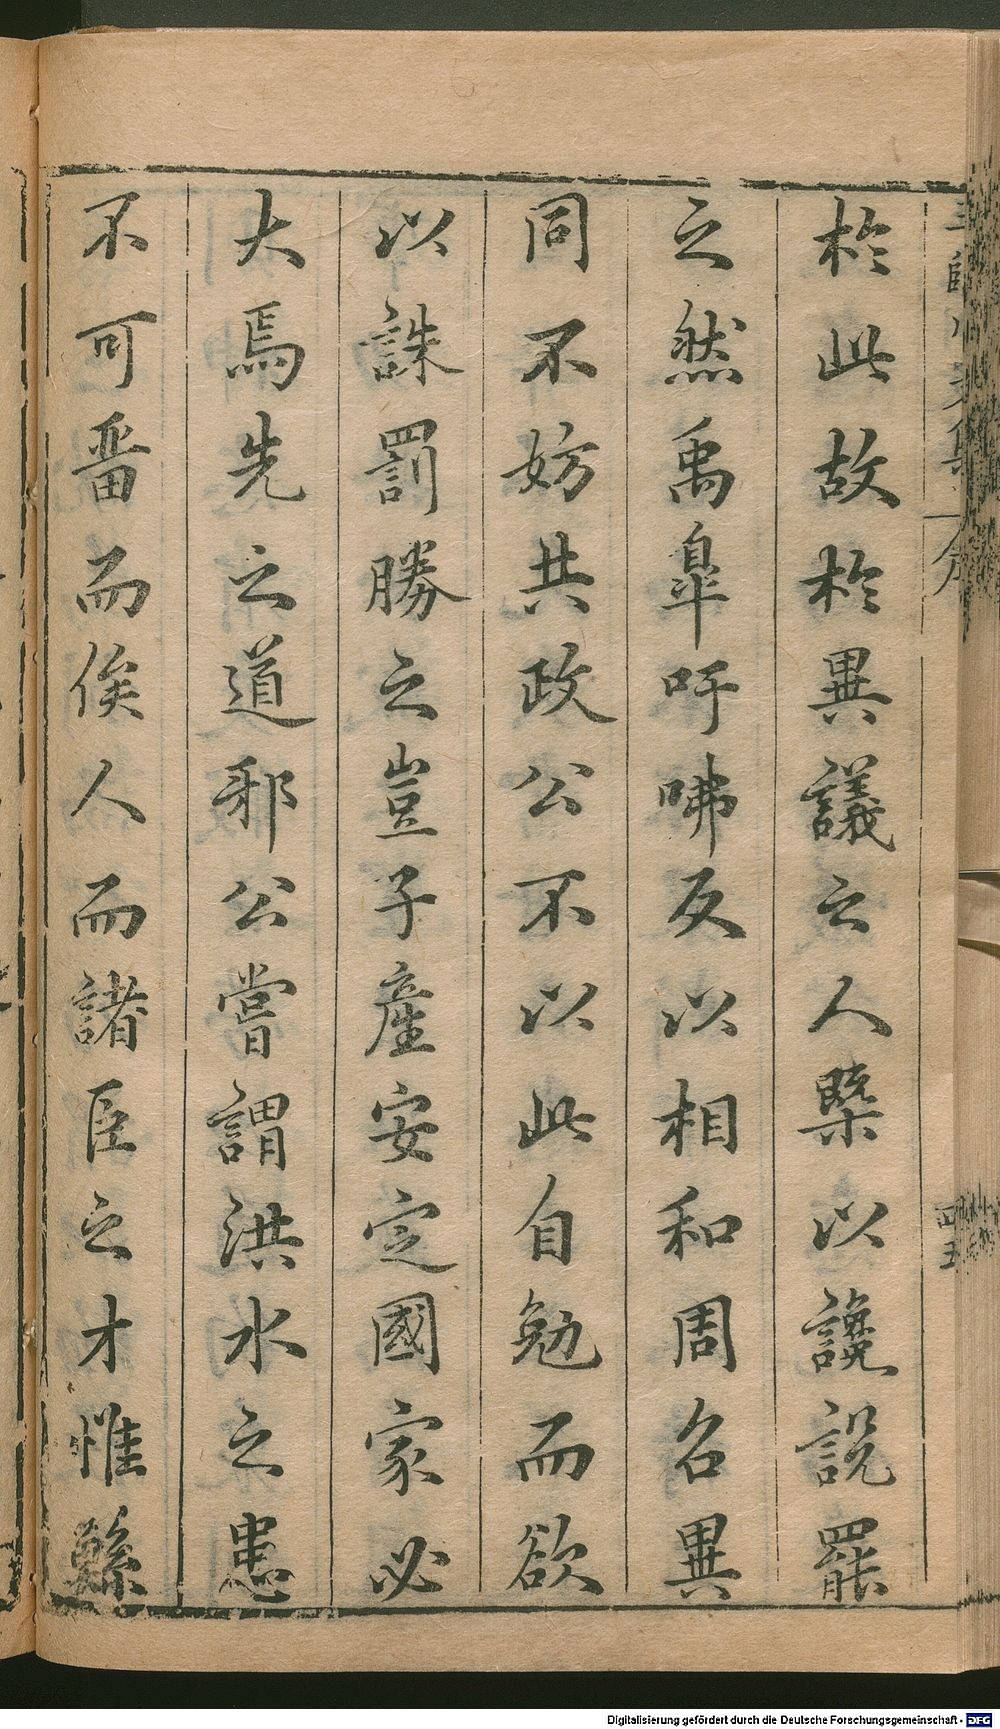 於此故於異議之人槩以讒説罷
之然禹臯吁咈反以相和周名異
同不妨共政公不以此自勉而欲
以誅罰勝之豈子產安定國家必
大焉先之道邪公嘗謂洪水之患
不可畱而俟人而諸臣之才惟鯀
Digitalisierung gefördert durch die Deutsche Forschungsgemeinschaft - DFG